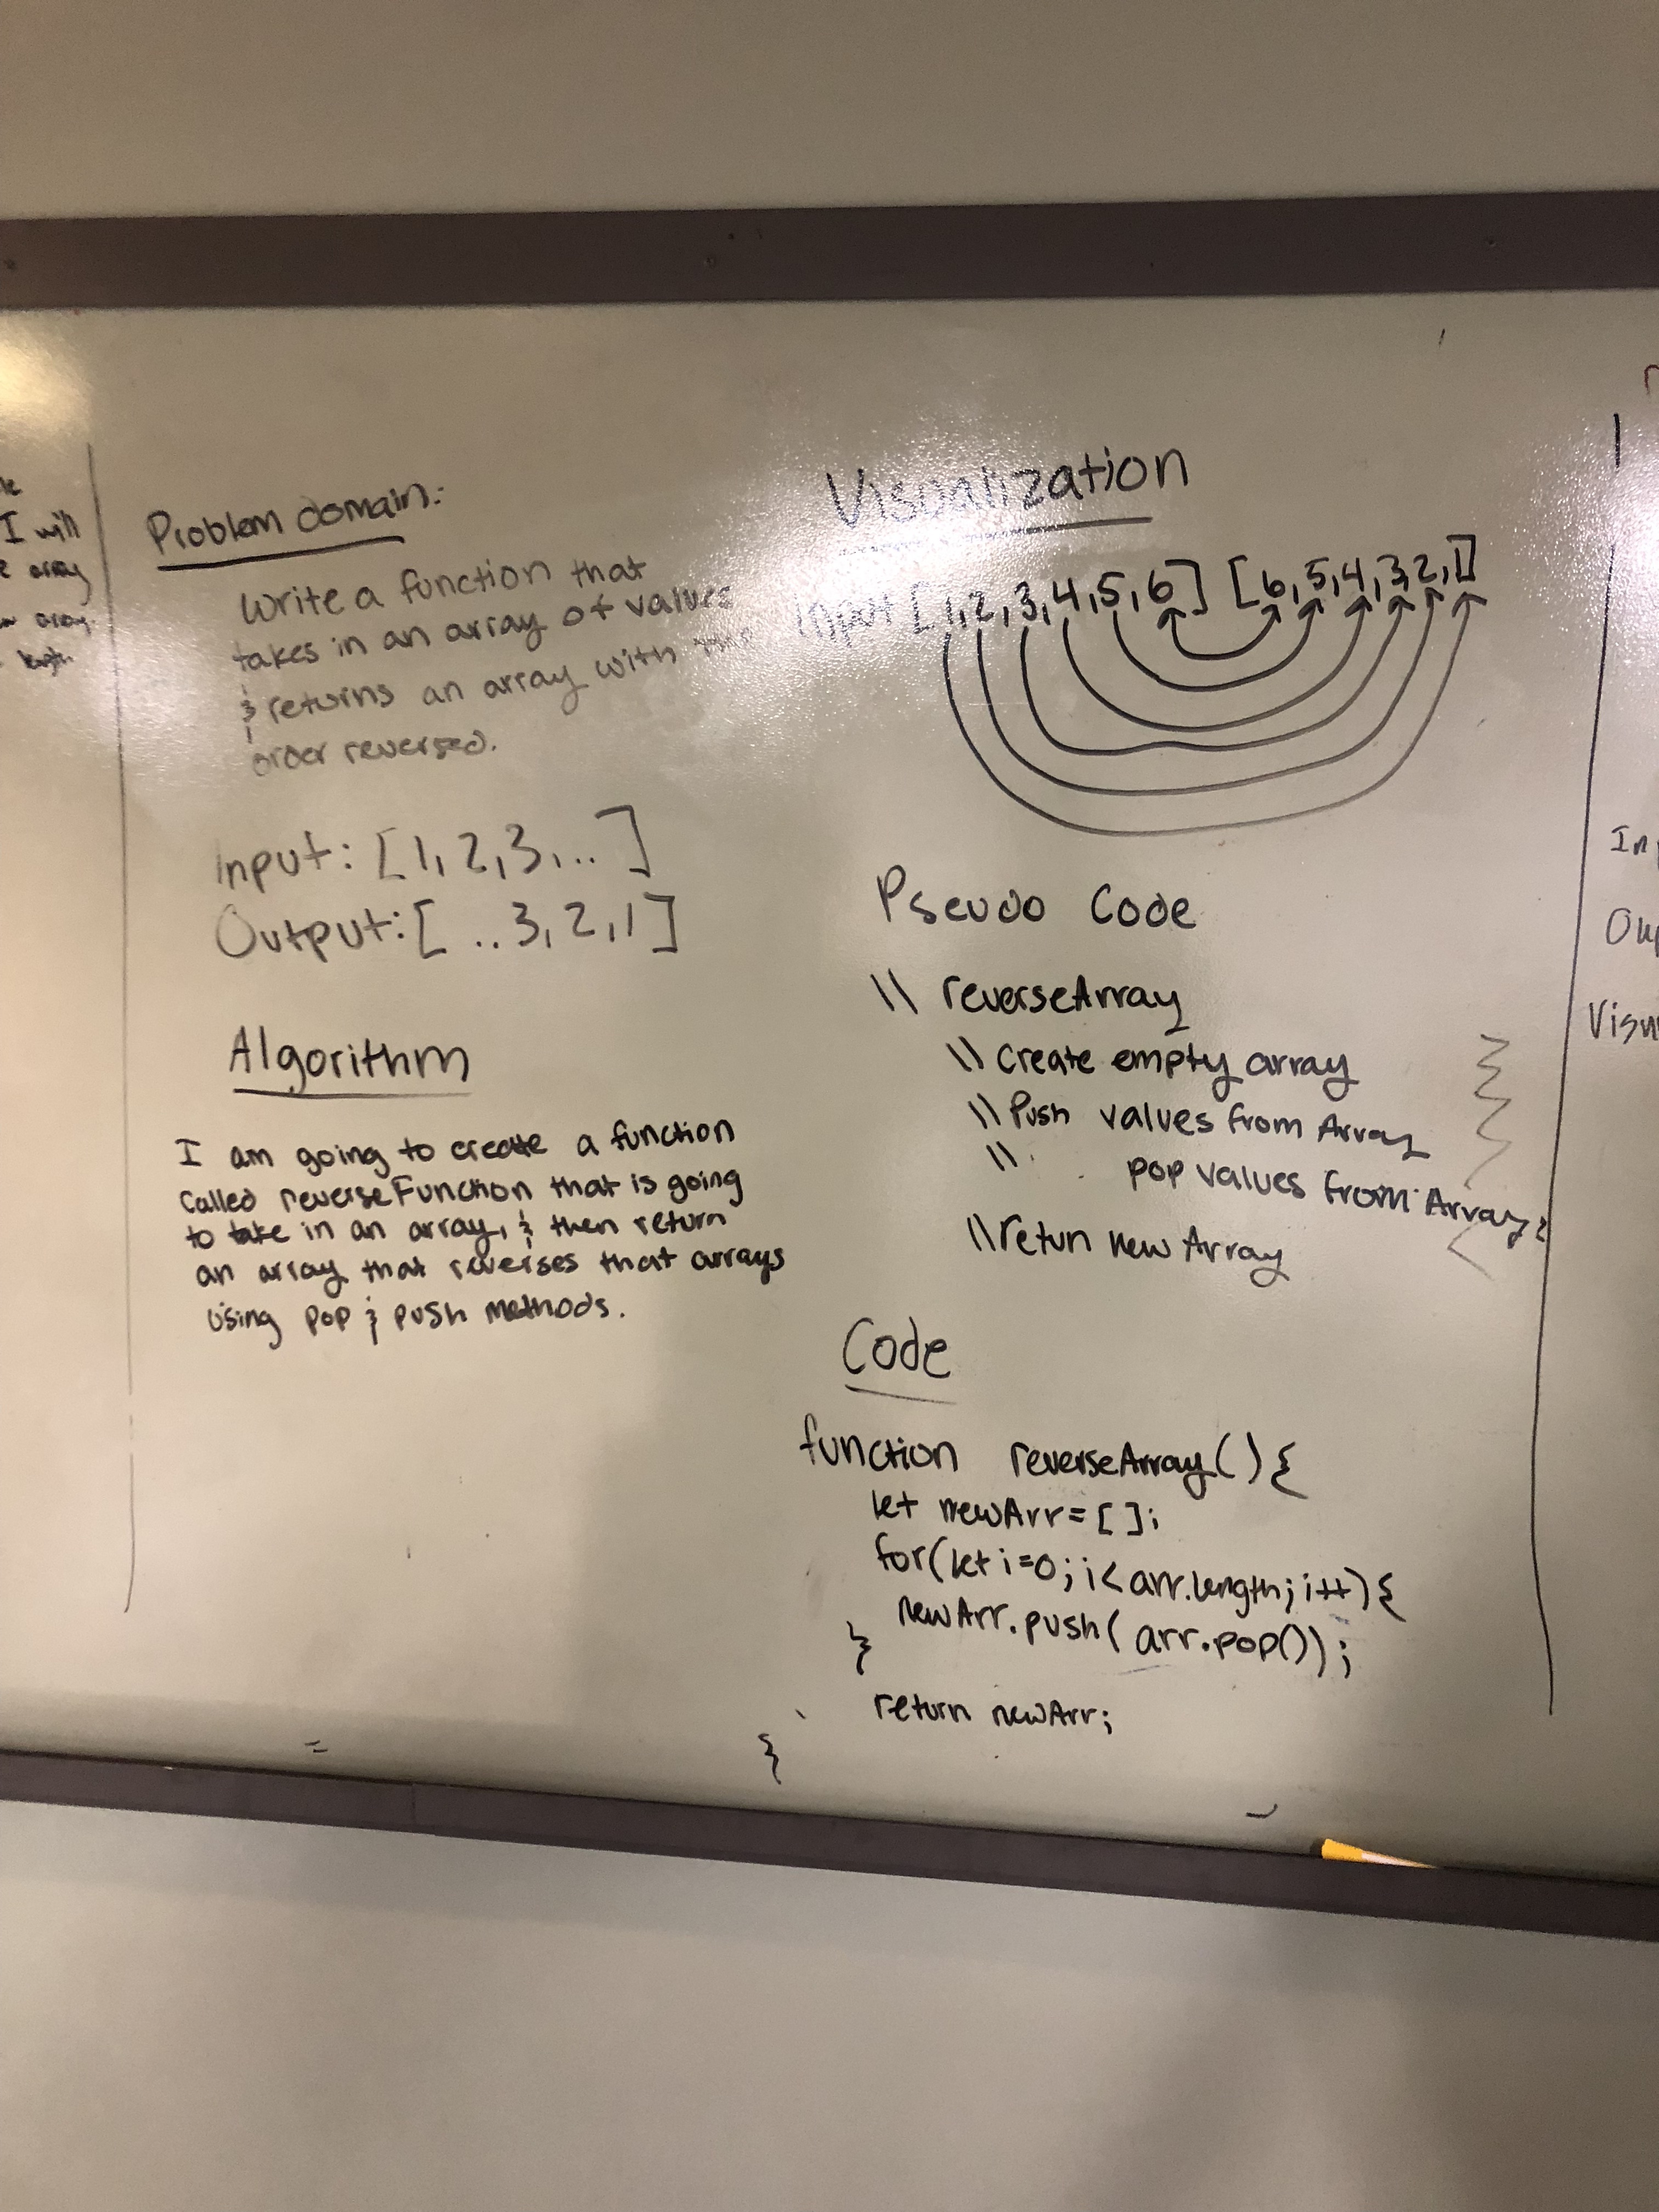 I will
array
array
length
Problem domain:
Write a function that
takes in an array of values
& returns an array with the
order reversed.
Input: [1, 2, 3, ... ]
Output: [ .. 3, 2, 1 ]
Algorithm
I am going to create a function
called reverseFunction that is going
to take in an array, & then return
an array that reverses that arrays
using pop & push methods.
Visualization
Input [1,2,3,4,5,6] [6,5,4,3,2,1]
Pseudo Code
\\ reverseArray
\\ Create empty array
\\ Push values from Array
\\ pop values from Array
\\ retun new Array
Code
function reverseArray(){
let newArr = [ ];
for(let i=0; i< arr.length; i++){
newArr.push( arr.pop());
}
return newArr;
}
In
Visu